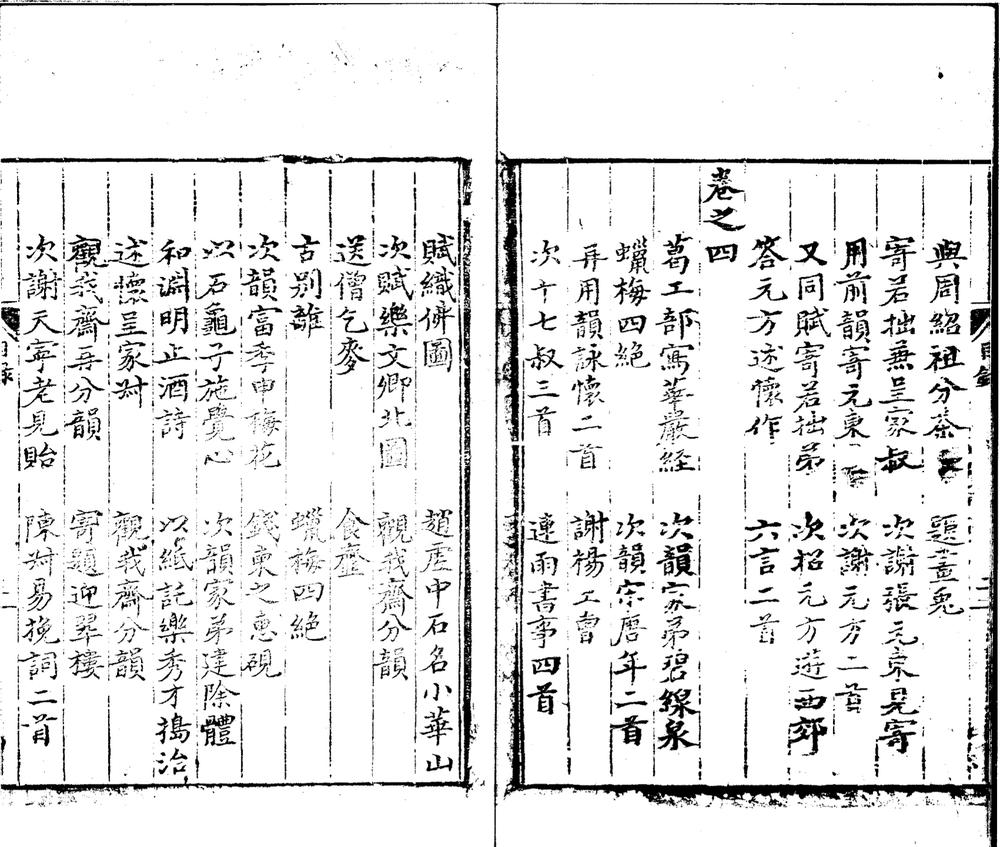 與周紹祖分茶　題畫兔
寄若拙兼呈家叔　次謝張元東見寄
用前韻寄元東　次謝元方二首
又同賦寄若拙弟　次招元方遊西郊
答元方述懷作　六言二首
卷之四
葛工部寫華嚴経　次韻家弟碧線泉
蠟梅四絶　次韻宋唇年二首
再用韻詠懷二首　謝楊工曹
次十七叔三首　連雨書事四首
目録
賦織佛圖　趙虗中石名小華山
次賦樂文卿北圖　觀我齋分韻
送僧乞麥　食虀
古别離　蠟梅四絶
次韻富季申梅花　錢東之惠硯
以石龜子施覺心　次韻家弟建除體
和淵明止酒詩　以紙託樂秀才搗治
述懷呈家叔　觀我齋分韻
觀我齋再分韻　寄題迎翠樓
次謝天寧老見貽　陳叔易挽詞二首
目録